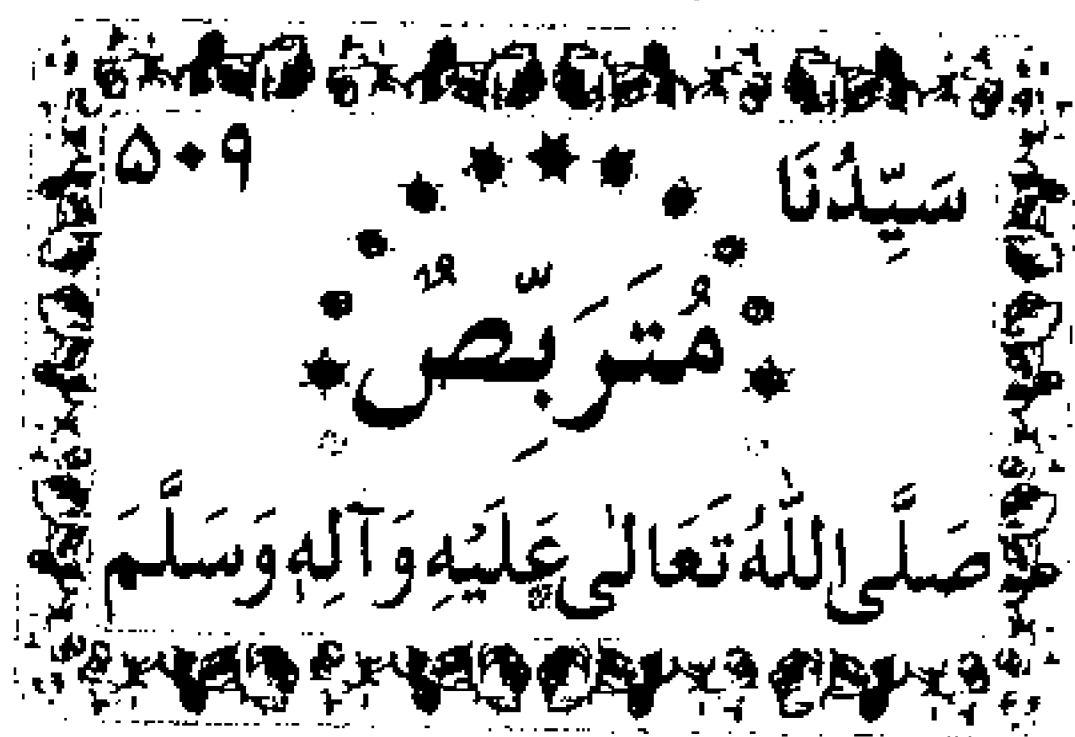 سَيِّدُنَا ۵۰۹
مُتَرَبِّصٌ
صَلَّى اللّٰهُ تَعَالٰى عَلَيْهِ وَآلِهٖ وَسَلَّمَ